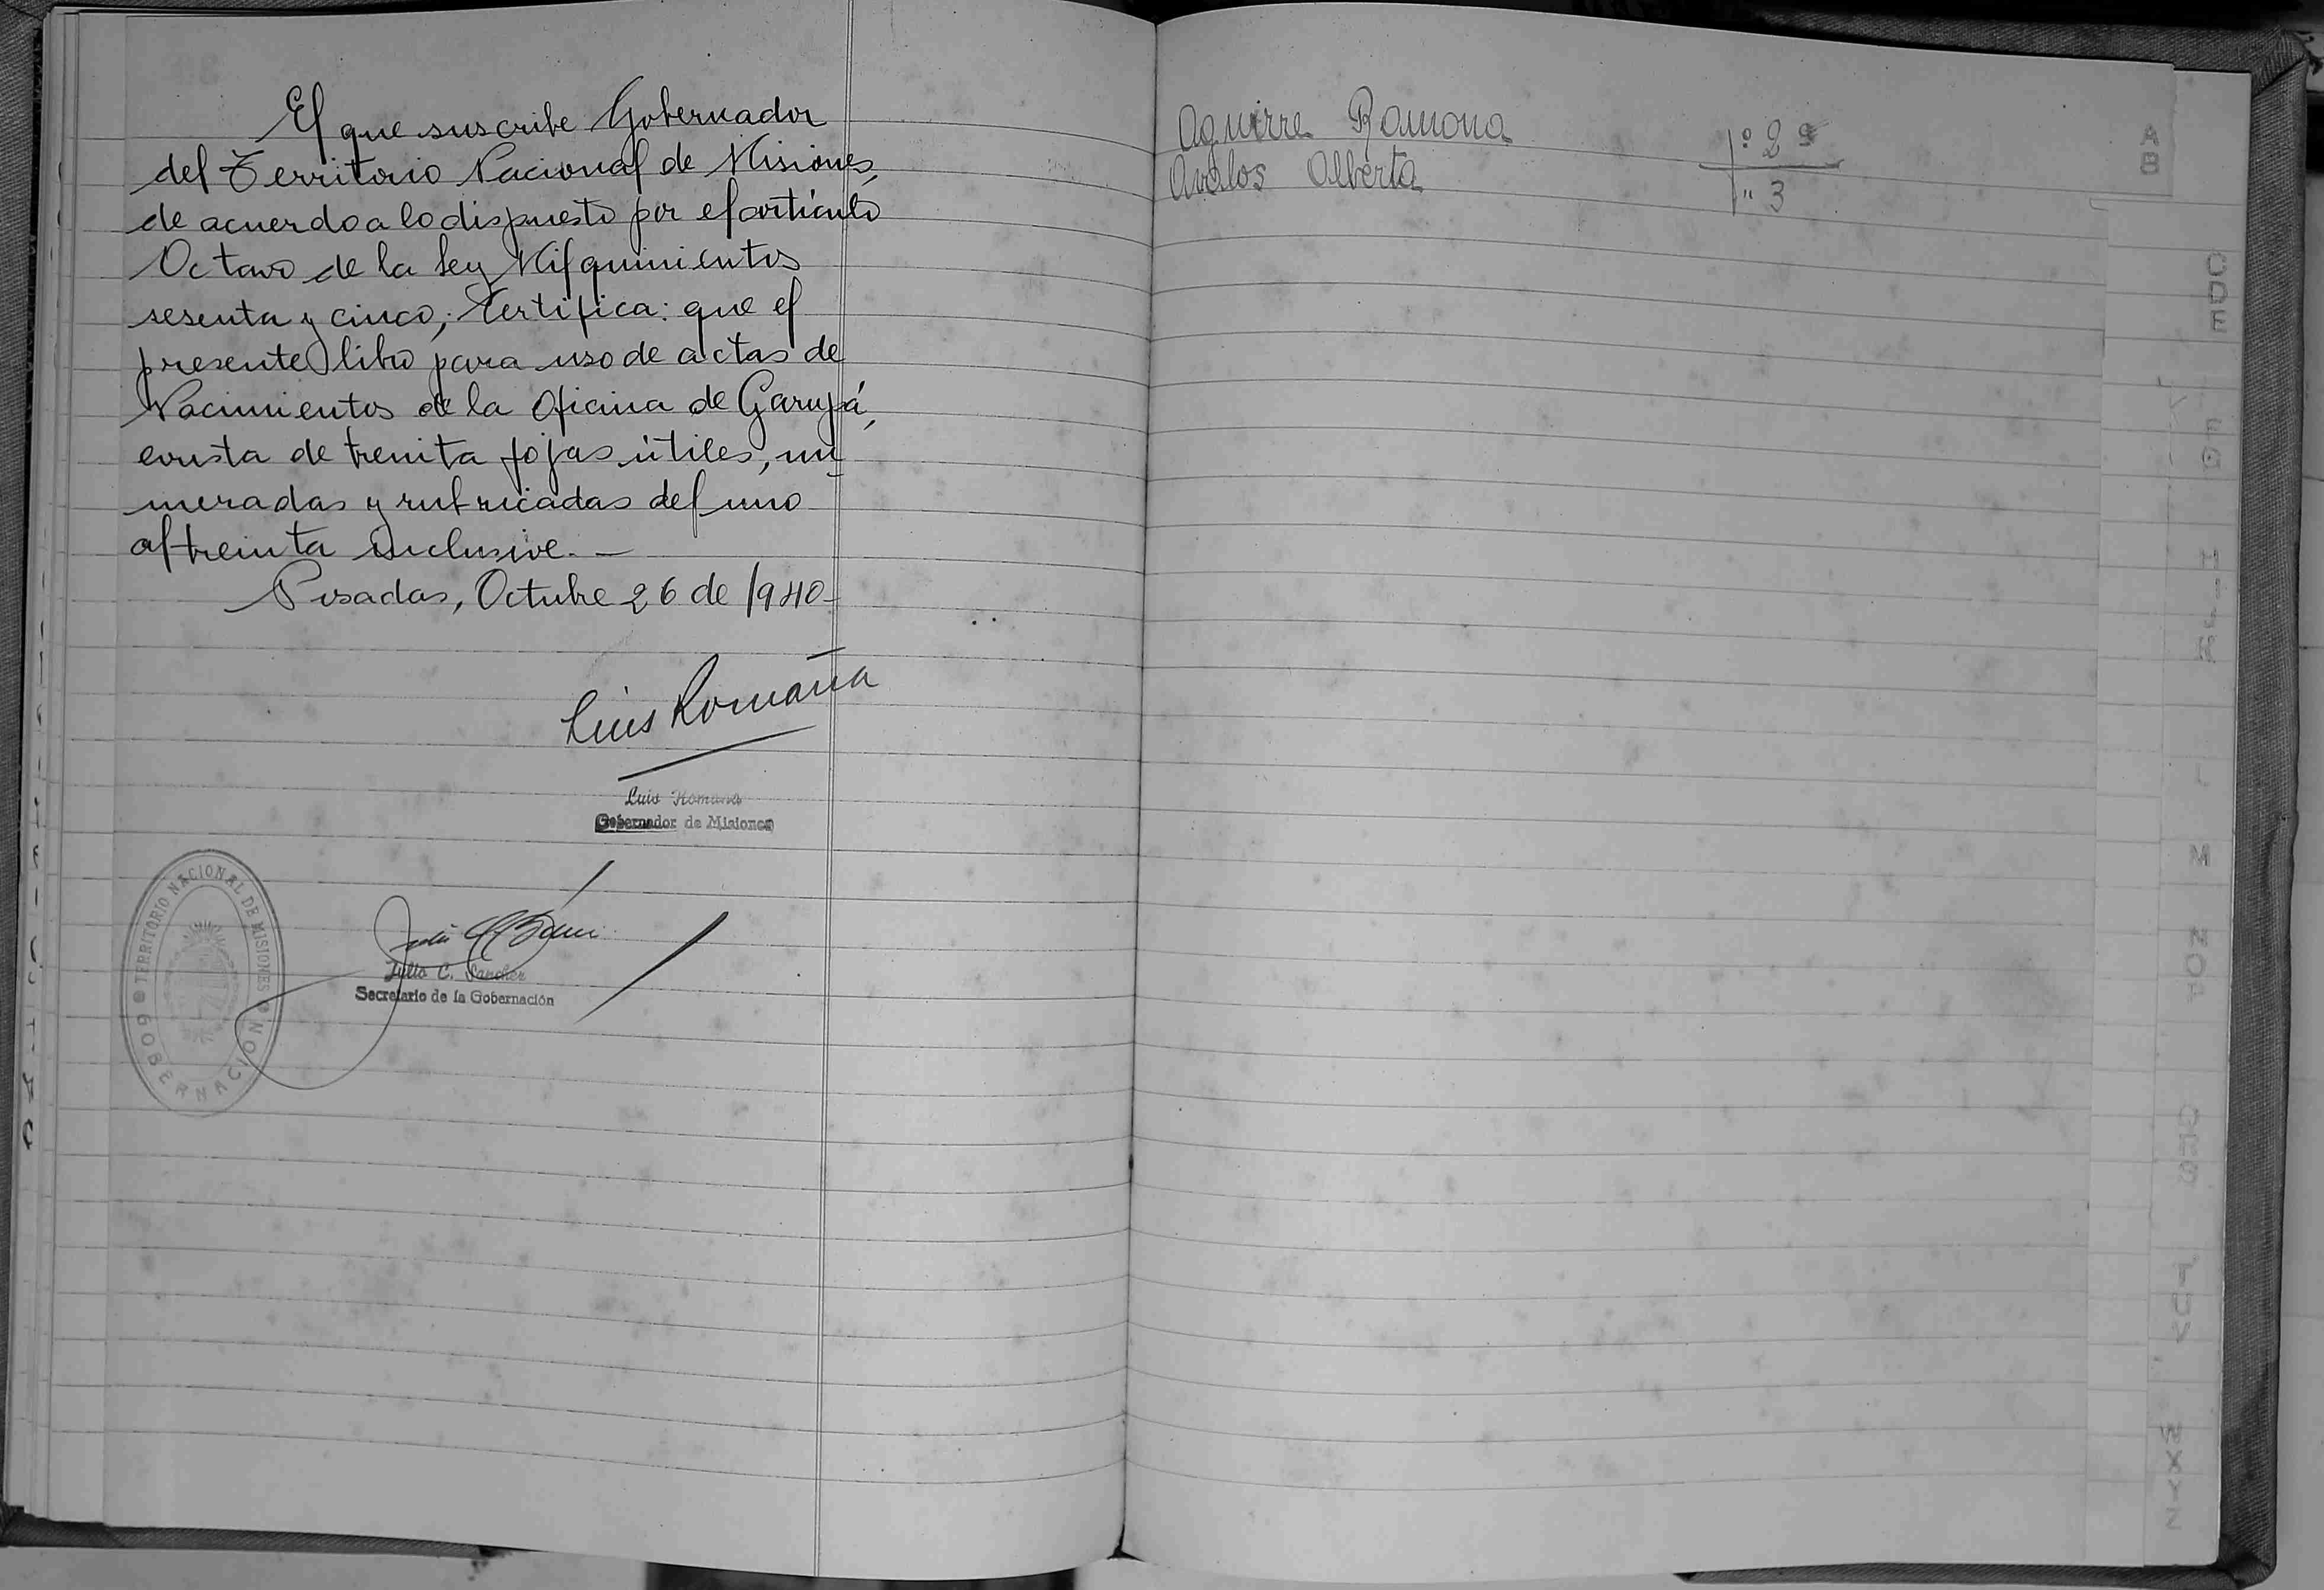 El que suscribe Gobernador
del Territorio Nacional de Misiones,
de acuerdo a lo dispuesto por el artículo
Octavo de la Ley Mil quinientos
sesenta y cinco, Certifica: que el
presente libro para uso de actas de
Nacimientos de la Oficina de Garupá,
consta de treinta fojas útiles, nu-
meradas y rubricadas del uno
al treinta inclusive.—
Posadas, Octubre 26 de 1940-
Luis Romaña
Luis Romaña
Gobernador de Misiones
TERRITORIO NACIONAL DE MISIONES
GOBERNACION
Julio C. Sanchez
Secretario de la Gobernación
Aguirre Ramona nº 2
Avalos Alberta " 3
A
B
C
D
E
F
G
H
I
J
K
L
M
N
O
P
Q
R
S
T
U
V
W
X
Y
Z